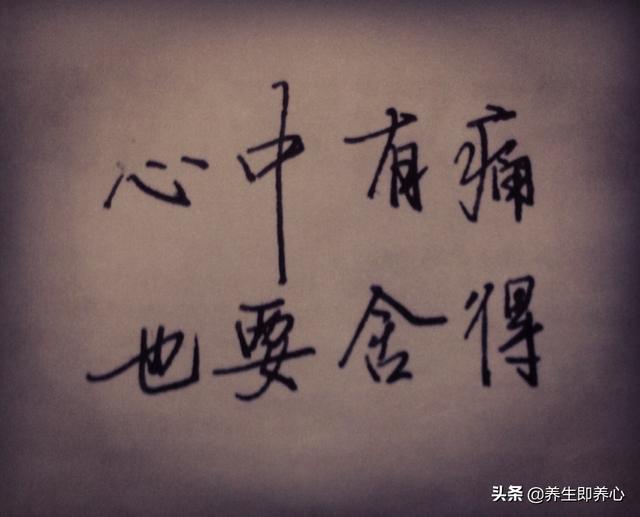 心中有痛
也要舍得
头条 @养生即养心